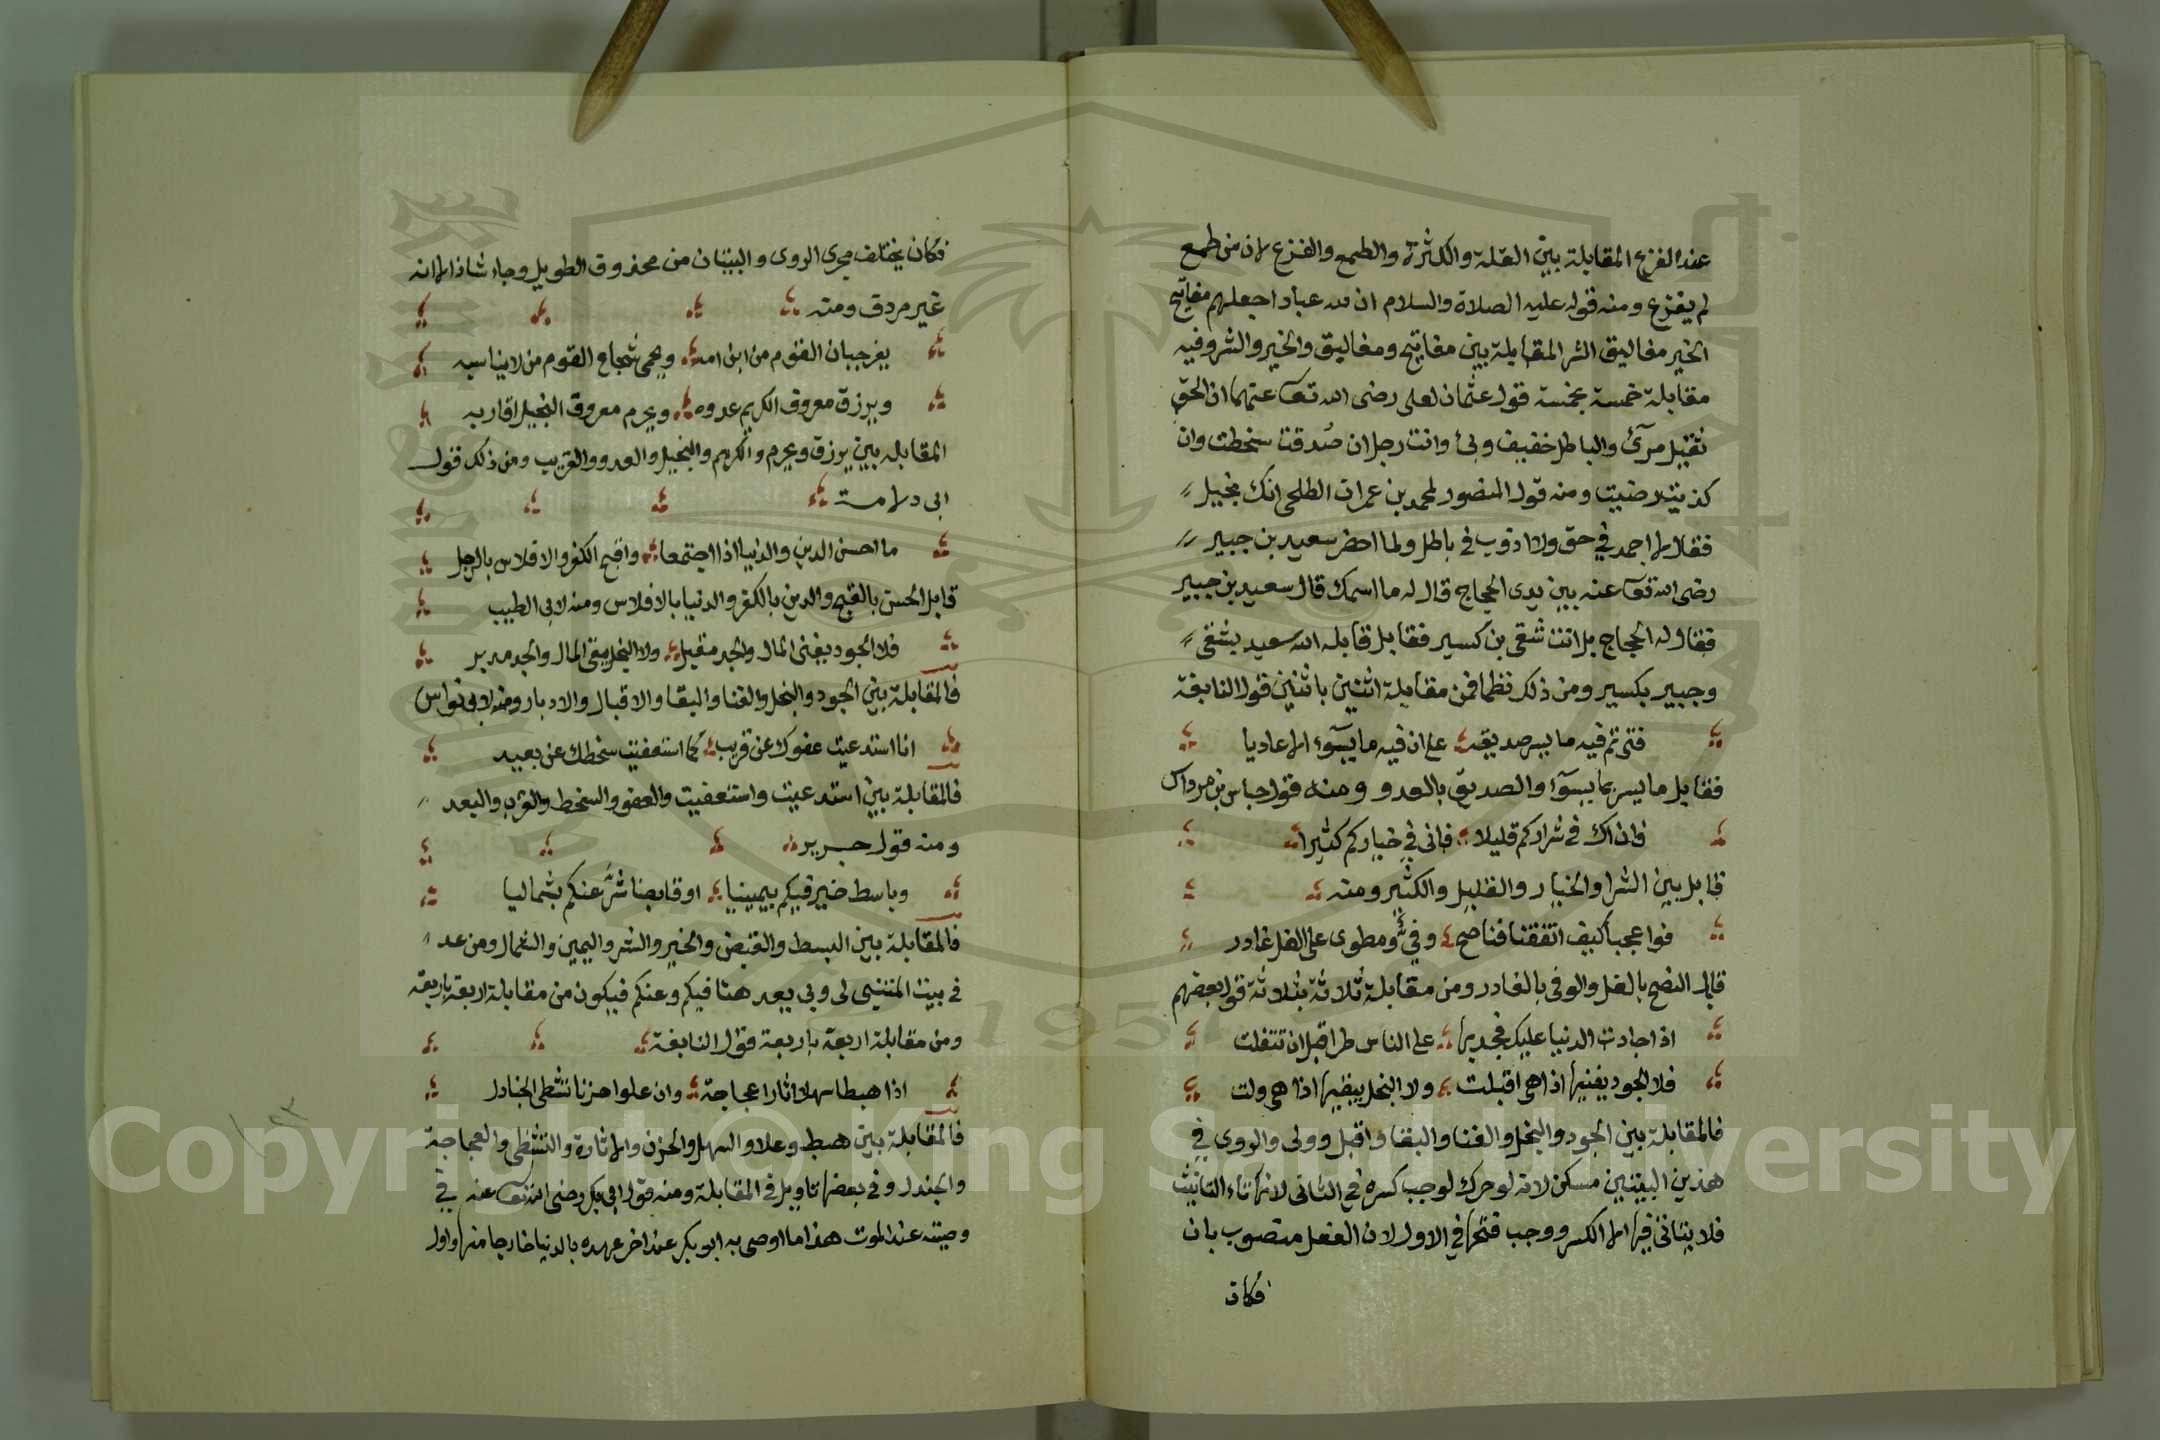 عند الفزع المقابلة بين القلة والكثرة والطمع والفزع لان من طمع
لم يفزع ومنه قوله عليه الصلاة والسلام ان لله عبادا جعلهم مفاتيح
الخير مغاليق الشر المقابلة بين مفاتيح ومغاليق والخير والشر وفيه
مقابلة خمسة بخمسة قول عثمان لعلى رضى الله تعا عنهما ان الحق
ثقيل مرئ والباطل خفيف وبئ وانت رجل ان صُدقت سخطت وان
كذبت رضيت ومنه قول المنصور لمحمد بن عمران الطلحى انك بخيل
فقال لا اجمد في حق ولا اذوب فى باطل ولما احضر سعيد بن جبير
رضى الله تعا عنه بين يدى الحجاج قال له ما اسمك قال سعيد بن جبير
فقال له الحجاج بل انت شقى بن كسير فقابل قابله الله سعيد بشقى
وجبير بكسير ومن ذلك نظما فمن مقابلة اثنين باثنين قول النابغة
فتى تم فيه ما يسر صديقه على ان فيه ما يسوء الاعاديا
فقابل ما يسر بما يسوء والصديق بالعدو ومنه قول عباس بن مرداس
فان اك فى شراركم قليلا فانى في خياركم كثيرا
قابل بين الشرار والخيار والقليل والكثير ومنه
فوا عجبا كيف اتفقنا فناصح وفيٌّ ومطوى على الغل غادر
قابل النصح بالغل والوفى بالغادر ومن مقابلة ثلاثة بثلاثة قول بعضهم
اذا جادت الدنيا عليك فجد بها على الناس طرا قبل ان تتفلت
فلا الجود يفنيها اذا هى اقبلت ولا البخل يبقيها اذا هى ولت
فالمقابلة بين الجود والبخل والفنا والبقا واقبل وولى والروى في
هذين البيتين مسكن لانه لو حرك لوجب كسره في الثانى لانها تاء التانيث
فلا يتاتى فيها الا الكسر ووجب فتحها في الاول لان الفعل منصوب بان
فكان
فكان يختلف مجرى الروى والبيتان من محذوف الطويل وجاء شاذا لانه
غير مردف ومنه
يفر جبان القوم من ابن امه ويحمى شجاع القوم من لا يناسبه
ويرزق معروف الكريم عدوه ويحرم معروف البخيل اقاربه
المقابله بين يرزق ويحرم والكريم والبخيل والعدو والقريب ومن ذلك قول
ابى دلامة
ما احسن الدين والدنيا اذا اجتمعا واقبح الكفر والافلاس بالرجل
قابل الحسن بالقبح والدين بالكفر والدنيا بالافلاس ومنه لابى الطيب
فلا الجود يفنى المال والجد مقبل ولا البخل يبقى المال والجد مدبر
فالمقابلة بين الجود والبخل والفنا والبقا والاقبال والادبار ومنه لابى نواس
انا استدعيت عفوك عن قريب كما استعفيت سخطك عن بعيد
فالمقابلة بين استدعيت واستعفيت والعفو والسخط والقرب والبعد
ومنه قول جرير
وباسط خير فيكم بيمينيا او قابضا شرٌّ عنكم بشماليا
فالمقابلة بين البسط والقبض والخير والشر واليمين والشمال ومن عد
فى بيت المتنبى لى وبى يعد هنا فيكم وعنكم فيكون من مقابلة اربعة باربعة
ومن مقابلة اربعة باربعة قول النابغة
اذا هبطا سهلا اثارا عجاجة وان علوا حزنا تشظى الجنادل
فالمقابلة بين هبط وعلا والسهل والحزن والاثارة والتشظى والعجاجة
والجندل وفى بعضها تاويل فى المقابلة ومنه قول ابى بكر رضى الله تعا عنه فى
وصيته عند الموت هذا ما اوصى به ابو بكر عند اخر عهده بالدنيا خارجا منها واول
Copyright © King Saud University
1957